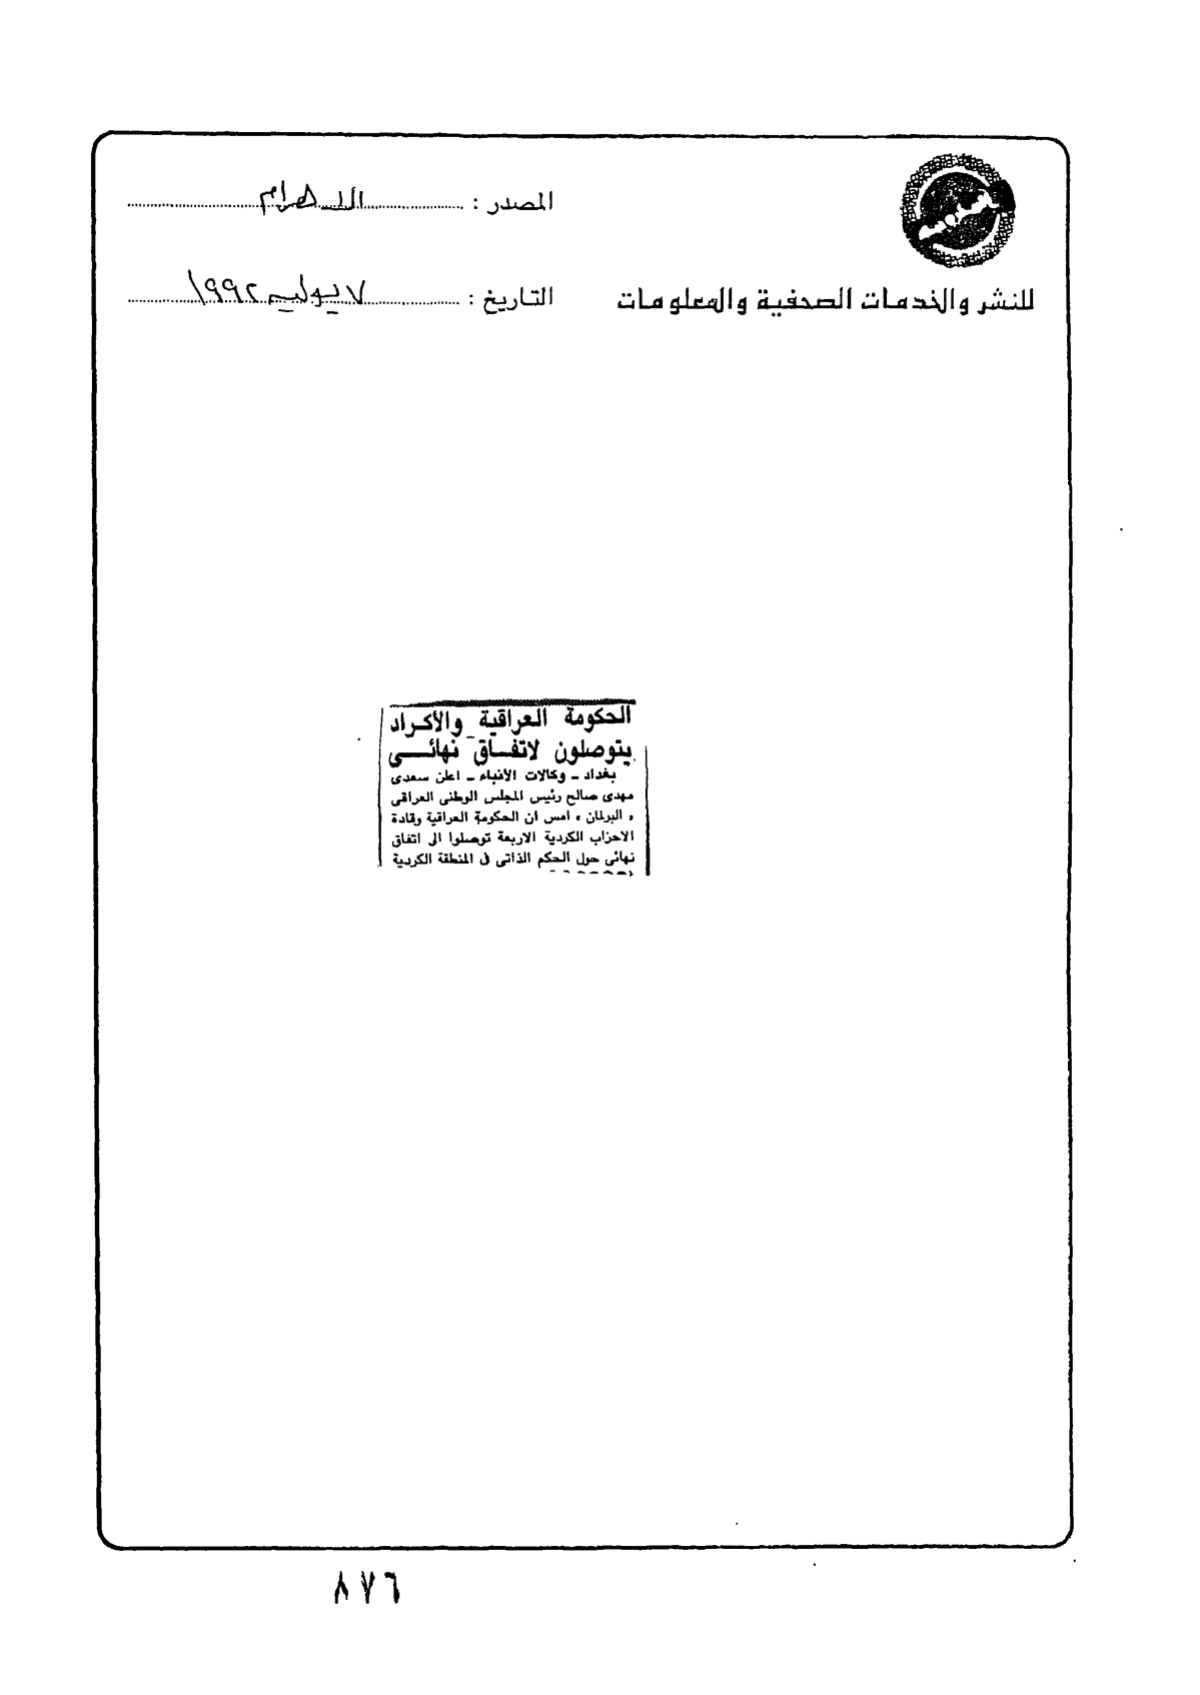 المصدر : الأهرام
التاريخ : ٧ يوليه ١٩٩٢
للنشر والخدمات الصحفية والمعلومات
الحكومة العراقية والأكراد
يتوصلون لاتفاق نهائى
بغداد ـ وكالات الأنباء ـ اعلن سعدى
مهدى صالح رئيس المجلس الوطنى العراقى
« البرلمان » امس ان الحكومة العراقية وقادة
الاحزاب الكردية الاربعة توصلوا الى اتفاق
نهائى حول الحكم الذاتى فى المنطقة الكردية
٨٧٦